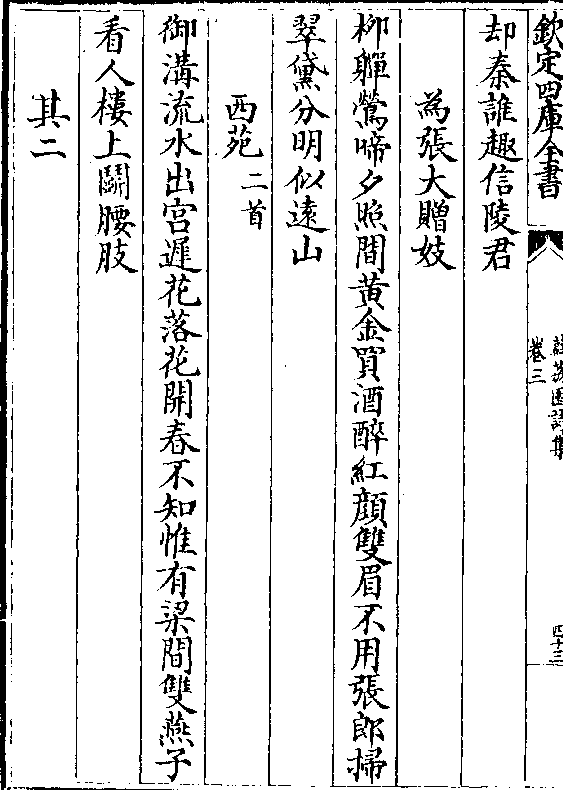 欽定四庫全書
卷三
四十三
却秦誰趣信陵君
為張大贈妓
柳軃鶯啼夕照間黄金買酒醉紅顔雙眉不用張郎掃
翠黛分明似遠山
西苑二首
御溝流水出宫遲花落花開春不知惟有梁間雙燕子
看人樓上鬬腰肢
其二